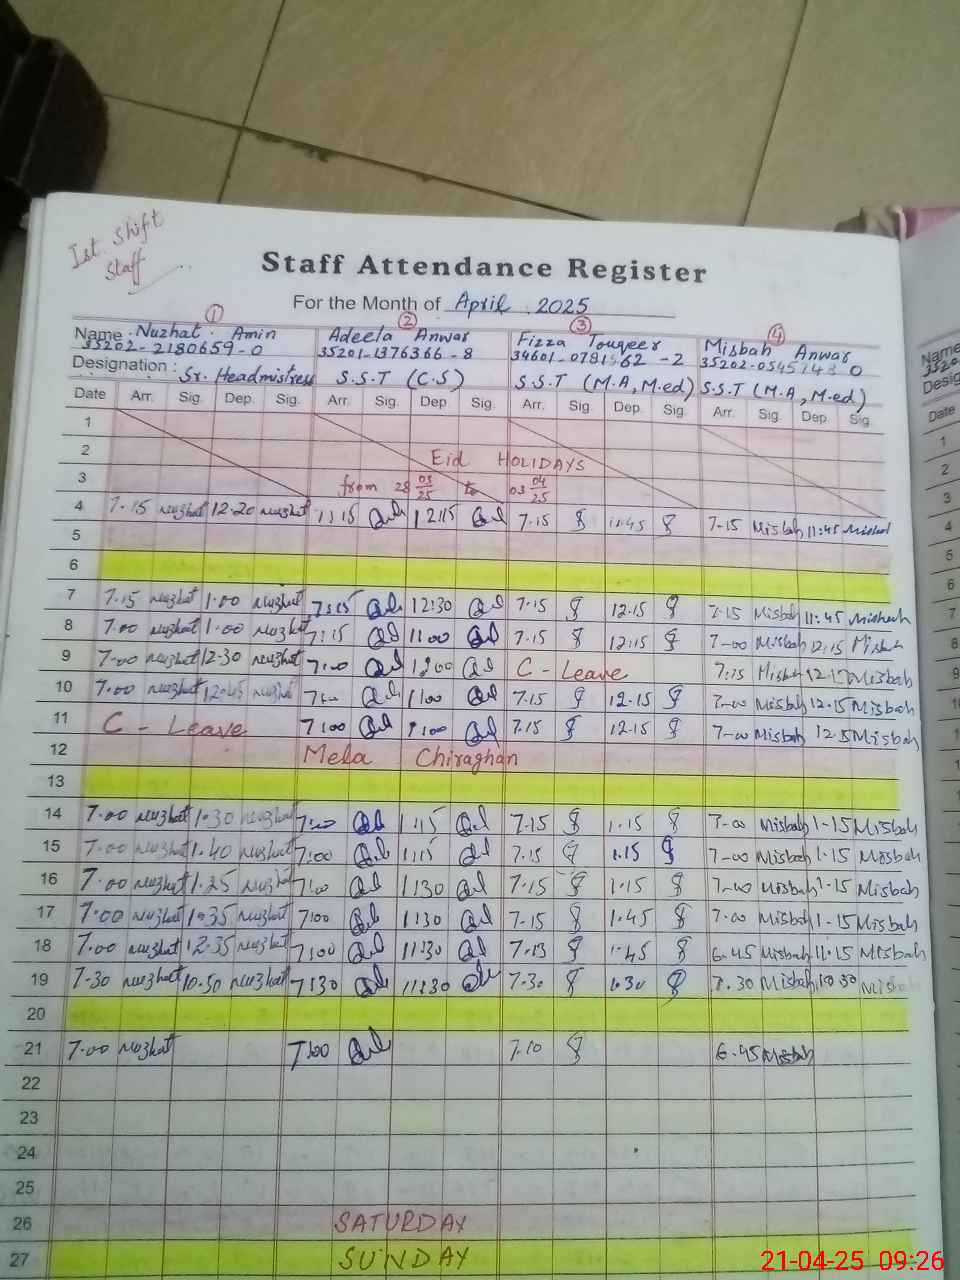 Ist Shift
Staff
Staff Attendance Register
For the Month of April 2025
① ② ③ ④
Name: Nuzhat Amin Adeela Anwar Fizza Touqeer Misbah Anwar Name
35202-2180659-0 35201-1376366-8 34601-0781562-2
Designation: Sr. Headmistress S.S.T (C.S) S.S.T (M.A, M.ed) S.S.T (M.A, M.ed)
Date Arr. Sig. Dep. Sig. Arr. Sig. Dep. Sig. Arr. Sig Dep. Sig. Arr. Sig. Dep. Sig. Date
1
2 Eid HOLIDAYS
3 from 28 03 25 to 03 04 25
4 7.15 Nuzhat 12.20 Nuzhat 7.15 11:45 7-15 Misbah 11:45 Misbah
5
6
7 7.15 Nuzhat 1.00 Nuzhat 12:30 7.15 12.15 7.15 Misbah 11.45 Misbah
8 7.00 Nuzhat 1.00 Nuzhat 7:15 7.15 12.15 7-00 Misbah 12.15 Misbah
9 7.00 Nuzhat 12.30 Nuzhat 7:00 C - Leave 7:15 Misbah Misbah
10 7.00 Nuzhat Nuzhat 7.15 12.15 7-00 Misbah 12.15 Misbah
11 C - Leave 7:00 7.15 12.15 7-00 Misbah Misbah
12 Mela Chiraghan
13
14 7.00 Nuzhat 1.30 Nuzhat 7:00 1:15 7.15 1.15 7-00 Misbah 1-15 Misbah
15 7.00 Nuzhat 1.40 Nuzhat 7:00 1:15 7.15 1.15 7-00 Misbah 1.15 Misbah
16 7.00 Nuzhat 1.25 Nuzhat 7:00 1:30 7.15 1.15 7-00 Misbah 1.15 Misbah
17 7.00 Nuzhat 1.35 Nuzhat 7:00 1:30 7.15 1.45 7.00 Misbah 1.15 Misbah
18 7.00 Nuzhat 12.35 Nuzhat 7:00 1.45 6.45 Misbah Misbah
19 7.30 Nuzhat 10.50 Nuzhat 7:30 7.30 1.30 7.30 Misbah 10.30 Misbah
20
21 7.00 Nuzhat 7:00 7.10 6.45 Misbah
22
23
24
25
26 SATURDAY
27 SUNDAY
21-04-25 09:26